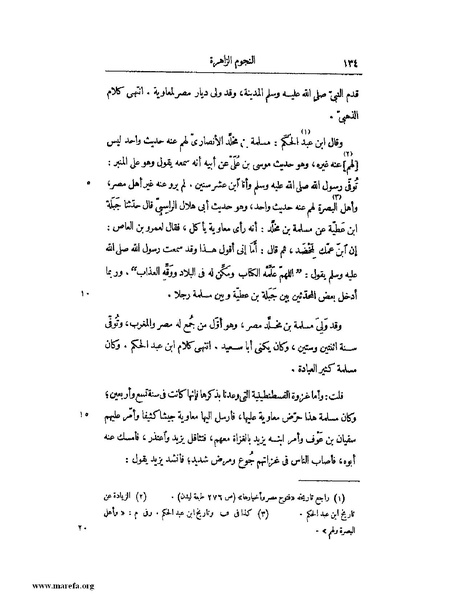 ١٣٤ النجوم الزاهرة
قدم النبىّ صلى الله عليه وسلم المدينة، وقد ولى ديار مصر لمعاوية . انتهى كلام
الذهبىّ .
وقال ابن عبد الحَكَم (١) : مسلمة بن مخَلَّد الأنصارىّ لهم عنه حديث واحد ليس
[لهم] (٢) عنه غيره، وهو حديث موسى بن عُلَىّ عن أبيه أنه سمعه يقول وهو على المنبر :
تُوفّى رسول الله صلى الله عليه وسلم وأنا آبن عشر سنين . لم يرو عنه غير أهل مصر، ٥
وأهل البصرة لهم (٣) عنه حديث واحد، وهو حديث أبى هلال الراسبىّ قال حدّثنا جَبَلة
ابن عَطيّة عن مسلمة بن مخلَّد : أنه رأى معاوية يأكل ، فقال لعمرو بن العاص :
إن آبن عمك لمِخْضَد ، ثم قال : أمَا إنى أقول هذا وقد سمعت رسول الله صلى الله
عليه وسلم يقول : "اللهمّ علِّمْه الكتاب ومكِّن له فى البلاد ووَقِّهِ العذاب" . وربما
أدخل بعض المحدّثين بين جَبَلة بن عطيّة وبين مسلمة رجلا . ١٠
وقد وَلِىَ مسلمة بن مخلَّد مصر ، وهو أوّل من جُمع له مصر والمغرب، وتُوفّى
سنة اثنتين وستين ، وكان يكنى أبا سعيد . انتهى كلام ابن عبد الحكم . وكان
مسلمة كثير العبادة .
قلت : وأما غزوة القسطنطينية التى وعدنا بذكرها فإنها كانت فى سنة تسع وأربعين؛
وكان مسلمة هذا حرّض معاوية عليها، فأرسل اليها معاوية جيشا كثيفا وأمّر عليهم ١٥
سفيان بن عَوْف وأمر ابنه يزيد بالغزاة معهم، فتثاقل يزيد وآعتذر ، فأمسك عنه
أبوه، فأصاب الناس فى غزاتهم جُوع ومرض شديد؛ فأنشد يزيد يقول :
(١) راجع تاريخه «فتوح مصر وأخبارها» (ص ٢٧٦ طبعة ليدن) . (٢) الزيادة عن
تاريخ ابن عبد الحكم . (٣) كذا فى ف وتاريخ ابن عبد الحكم . وفى م : « وأهل
البصرة ولهم » . ٢٠
www.marefa.org